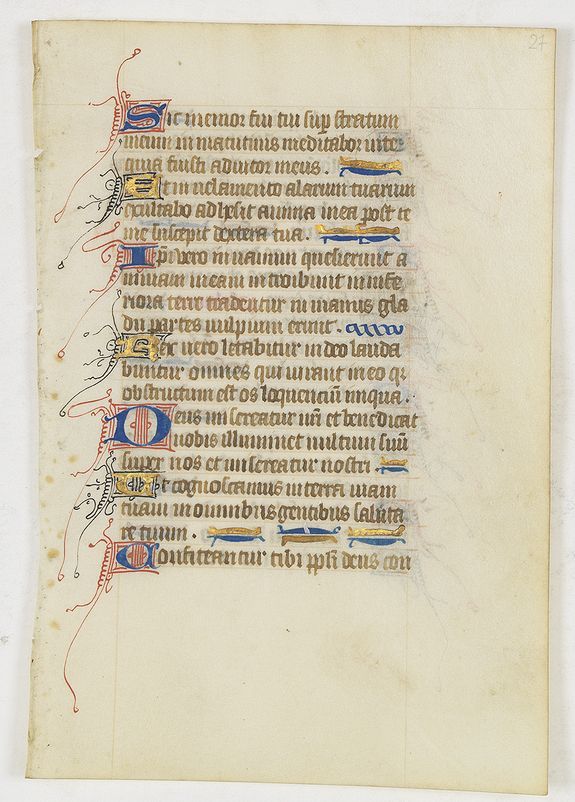 27
Sic memor fui tui sup stratum
meum in matutinis meditabor in te
quia fuisti adiutor meus.
Et in velamento alarum tuarum
exultabo adhesit anima mea post te
me suscepit dextera tua.
Ipi vero in vanum quesierunt a
nimam meam introibunt in infe
riora terre tradentur in manus gla
dii partes vulpium erunt.
Rex vero letabitur in deo lauda
buntur omnes qui iurant in eo q
obstructum est os loquenciu iniqua.
Deus misereatur nri et benedicat
nobis illuminet vultum suu
super nos et misereatur nostri.
Ut cognoscamus in terra viam
tuam in omnibus gentibus saluta
re tuum.
Confiteantur tibi ppli deus con